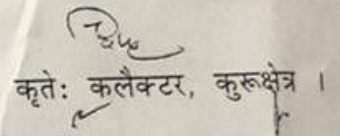 कृते: कलैक्टर, कुरूक्षेत्र ।